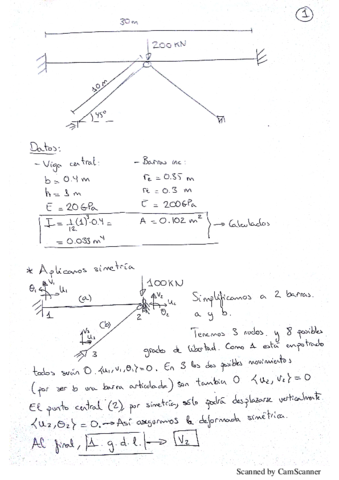 1
30 m
200 KN
C
10 m
45°
Datos:
- Viga central:
- Barras inc:
b = 0.4 m
h = 1 m
E = 20 GPa
I = 1/12 (1)³ · 0.4 =
= 0.033 m⁴
r_e = 0.35 m
r_i = 0.3 m
E = 200 GPa
A = 0.102 m²
→ Calculados
* Aplicamos simetría
100 KN
θ₁ v₁ u₁
(a)
1
v₂ u₂ θ₂
2
(b)
v₃ u₃
3
Simplificamos a 2 barras.
a y b.
Tenemos 3 nudos. y 8 posibles
grados de libertad. Como 1 está empotrado
todos serán 0. {u₁, v₁, θ₁} = 0. En 3 los dos posibles movimientos
(por ser b una barra articulada) son también 0 {u₃, v₃} = 0
El punto central (2) por simetría, sólo podrá desplazarse verticalmente
{u₂, θ₂} = 0. → Así aseguramos la deformada simétrica.
Al final, 1. g. d. l. → v₂
Scanned by CamScanner